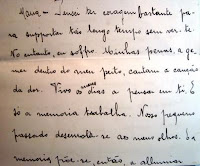 Dona — Pensei ter coragem bastante pa-
ra supportar tão longo tempo sem ver-te.
No entanto, eu soffro. Minhas penas, a ge-
mer dentro do meu peito, cantam a canção
da dor. Vivo os dias a pensar em ti. E
só a memoria trabalha. Nosso pequeno
passado desenrola-se ao meus olhos. E a
memoria põe-se, então, a allumiar